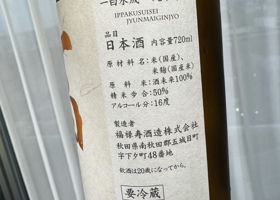 IPPAKUSUISEI
JYUNMAIGINJYO
品目
日本酒 内容量720ml
原材料名/米(国産)、
米麹(国産)
原料米/酒未来100%
精米歩合/50%
アルコール分/16度
製造者
福禄寿酒造株式会社
秋田県南秋田郡五城目町
字下夕町48番地
飲酒は20歳になってから。
要冷蔵